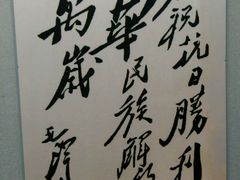 祝抗日勝利
華民族解放
萬歲